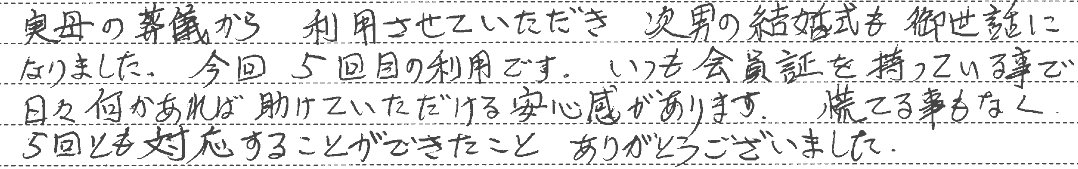 実母の葬儀から 利用させていただき 次男の結婚式も御世話に
なりました。 今回 5回目の利用です. いつも会員証を持っている事で
日々何かあれば助けていただける安心感があります. 慌てる事もなく
5回とも対応することができたこと ありがとうございました.